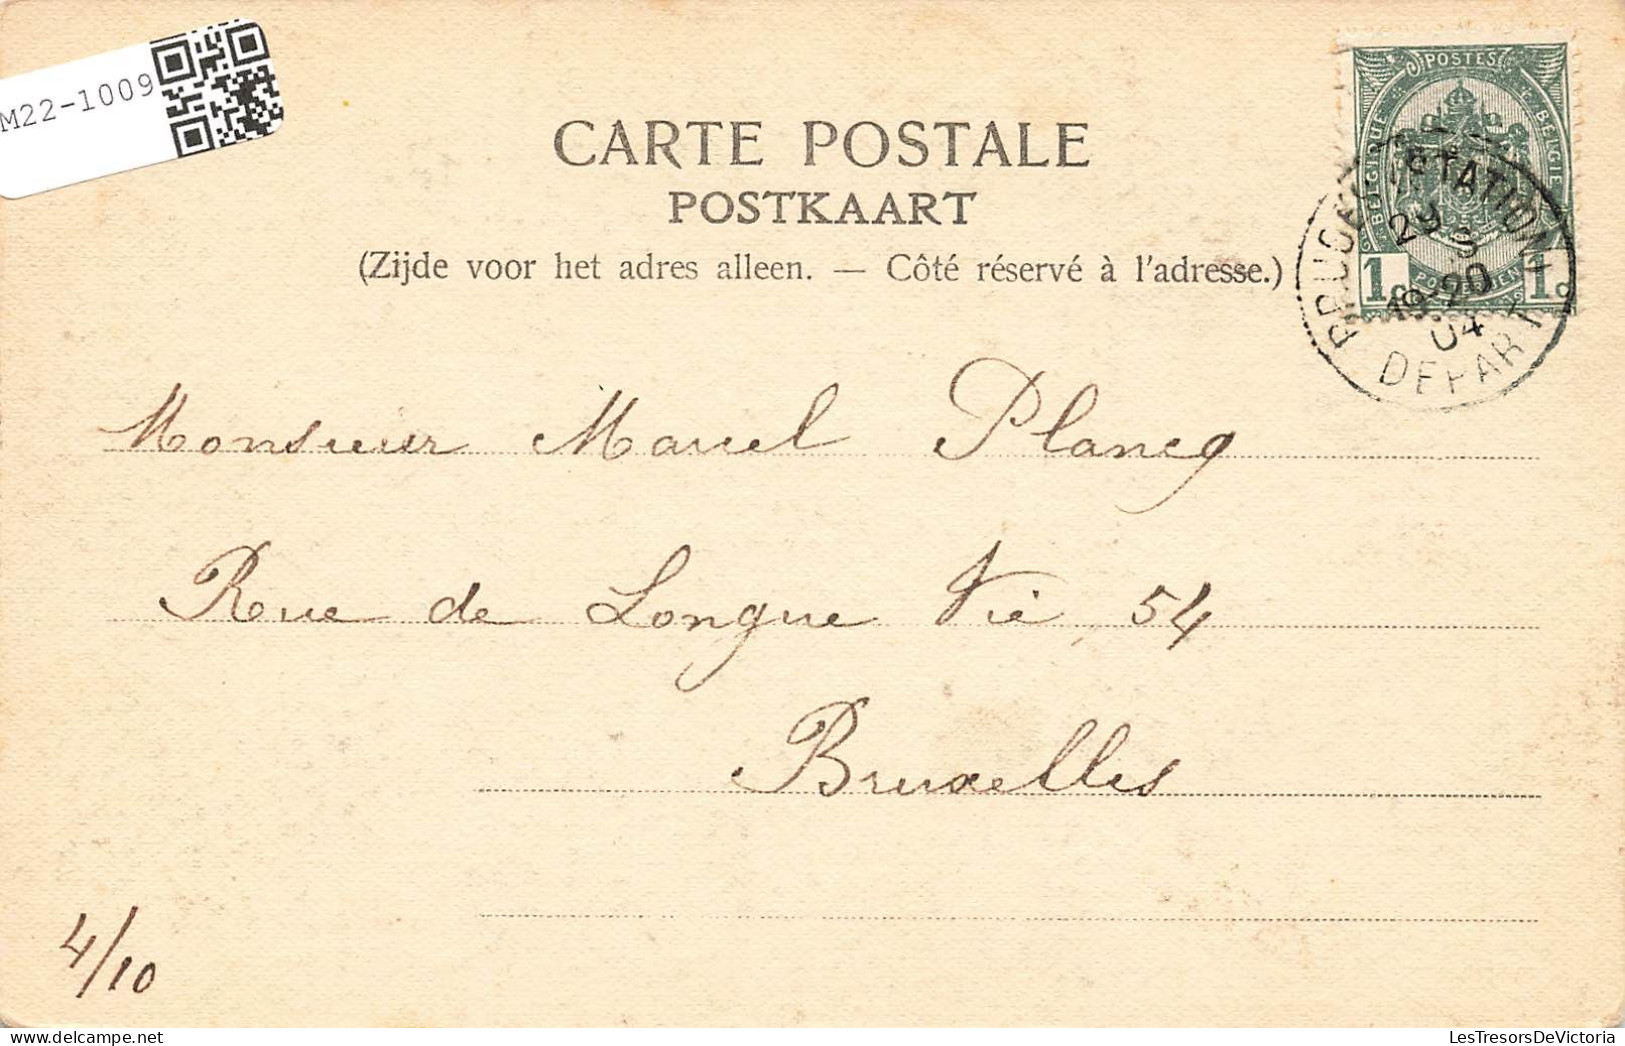 M22-1009
CARTE POSTALE
POSTKAART
(Zijde voor het adres alleen. — Côté réservé à l'adresse.)
POSTES
BELGIQUE
BELGIË
1c 1c
STATION
29 S
19-20
04
DEPART
Monsieur Marcel Plancq
Rue de Longue Vie, 54
Bruxelles
4/10
LesTresorsDeVictoria